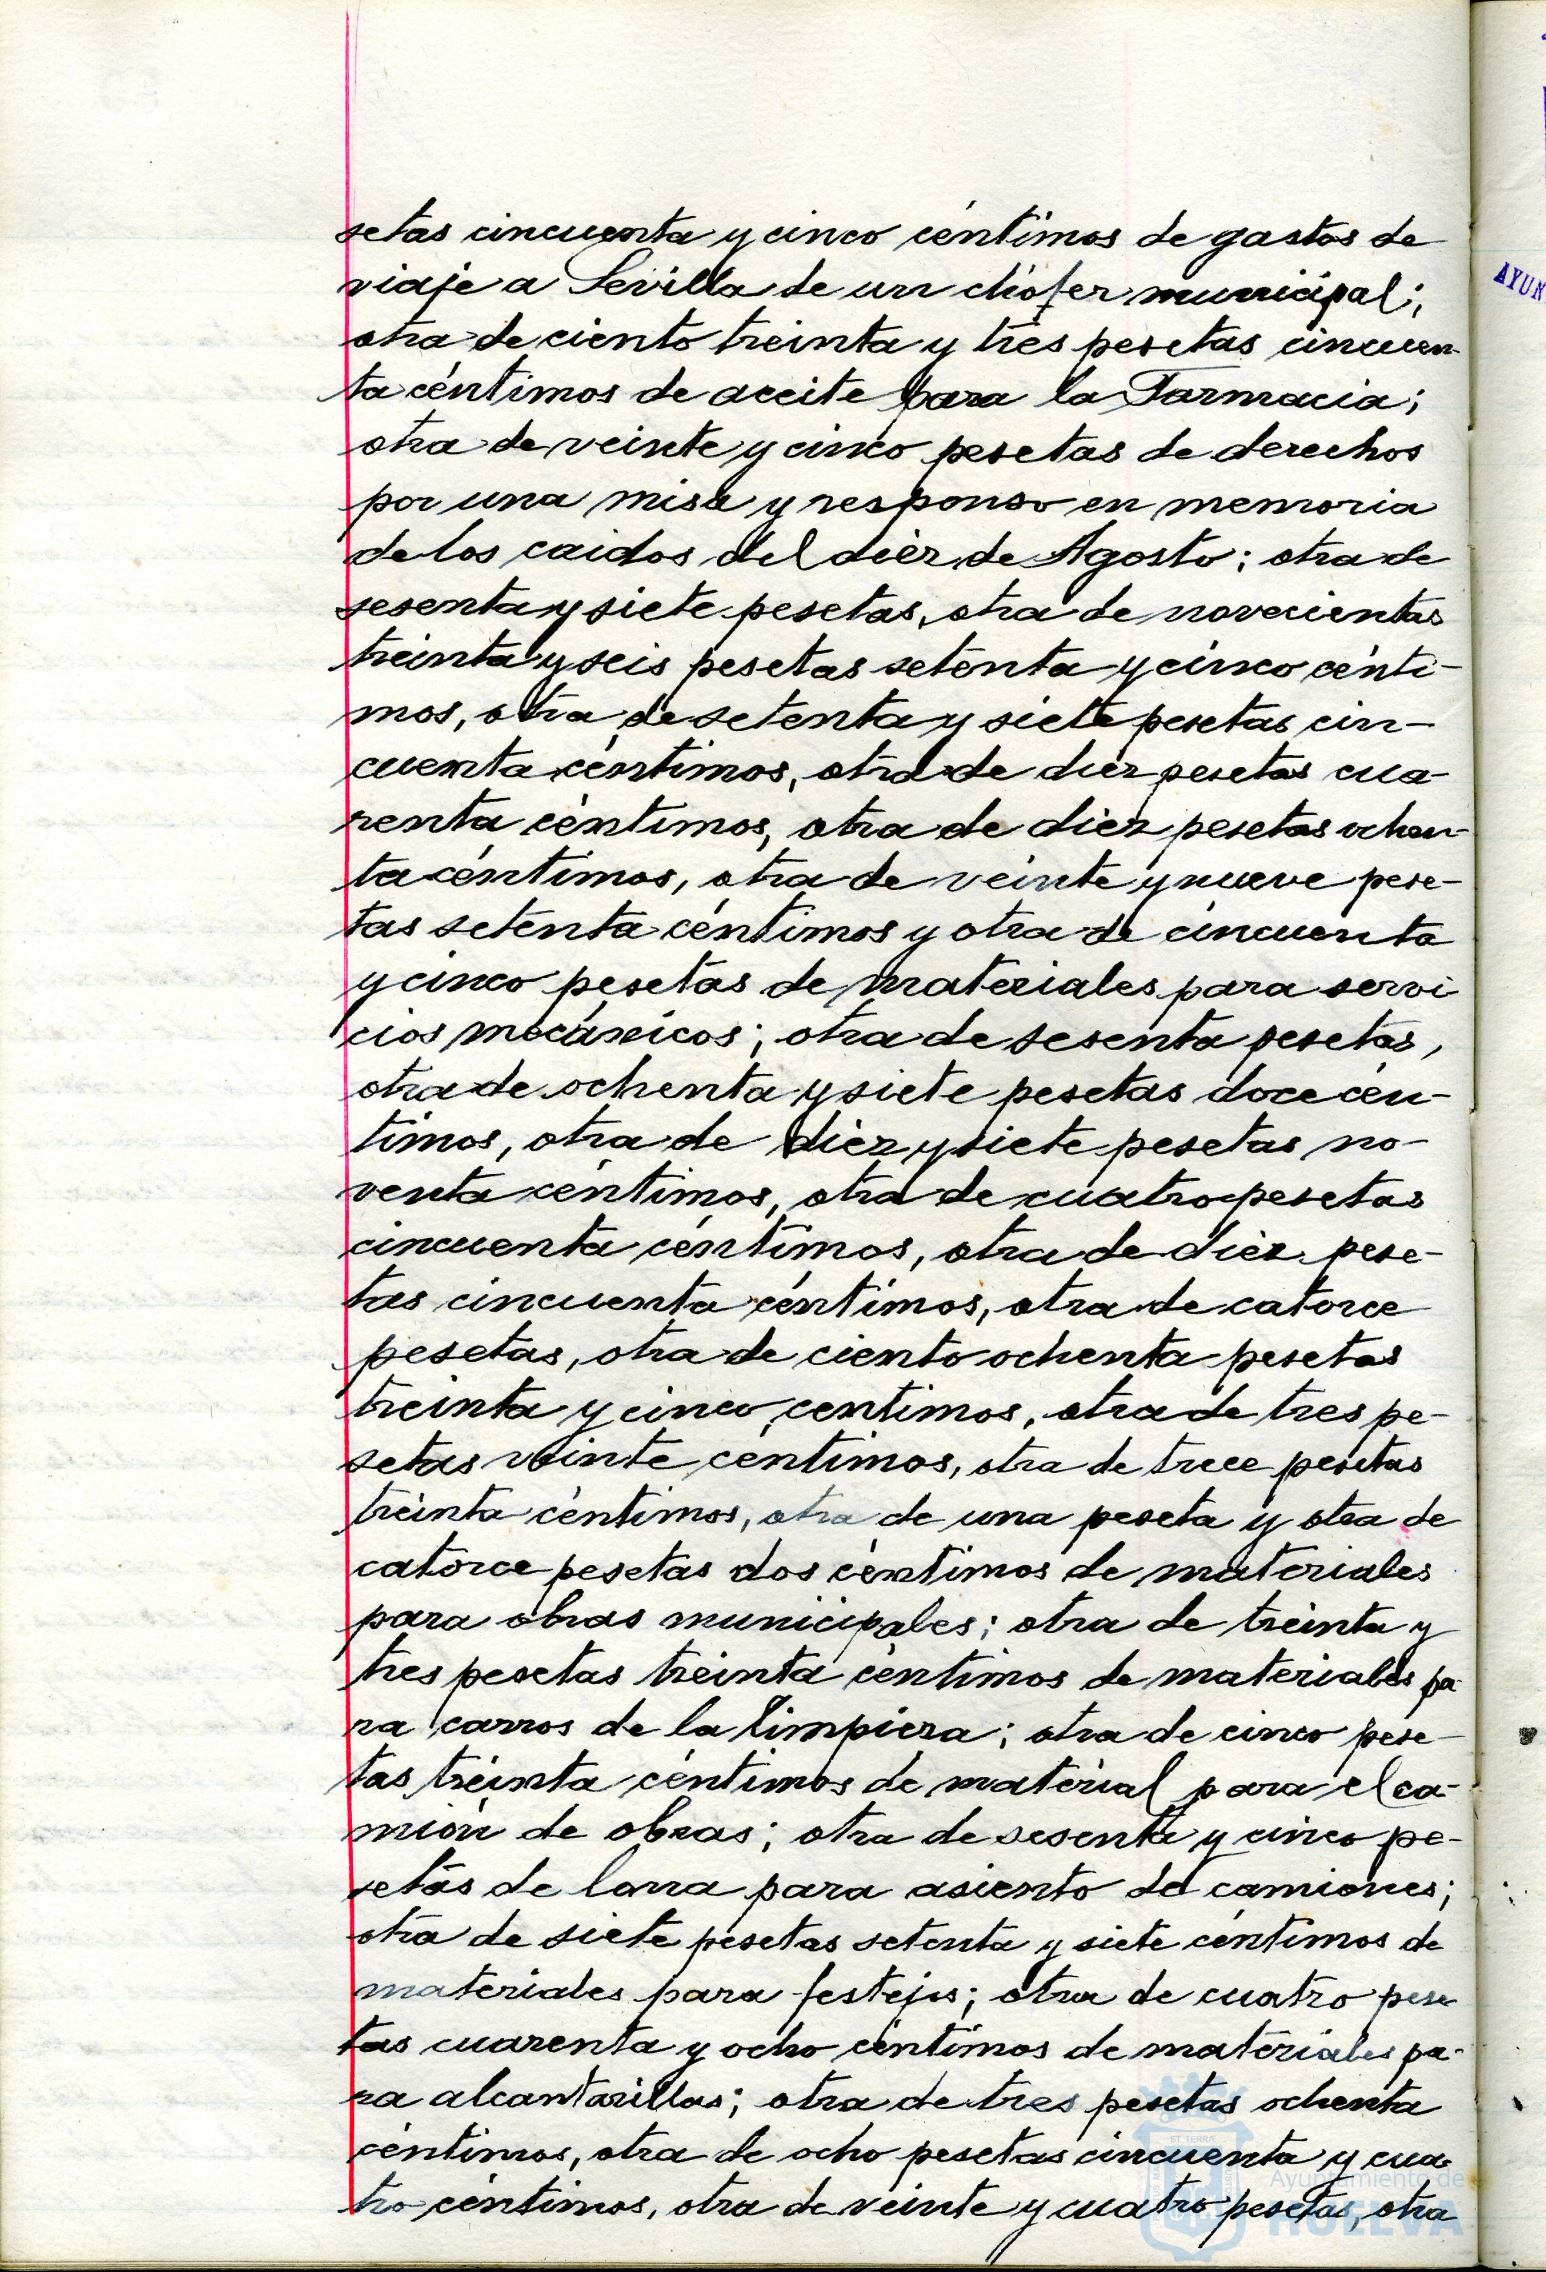 setas cincuenta y cinco céntimos de gastos de
viaje a Sevilla de un chófer municipal;
otra de ciento treinta y tres pesetas cincuen-
ta céntimos de aceite para la Farmacia;
otra de veinte y cinco pesetas de derechos
por una misa y responso en memoria
de los caidos del diéz de Agosto; otra de
sesenta y siete pesetas, otra de novecientas
treinta y seis pesetas setenta y cinco cénti-
mos, otra de setenta y siete pesetas cin-
cuenta céntimos, otra de diéz pesetas cua-
renta céntimos, otra de diez pesetas ochen-
ta céntimos, otra de veinte y nueve pese-
tas setenta céntimos y otra de cincuenta
y cinco pesetas de materiales para servi
cios mecánicos; otra de sesenta pesetas,
otra de ochenta y siete pesetas doce cén-
timos, otra de diez y siete pesetas no-
venta céntimos, otra de cuatro pesetas
cincuenta céntimos, otra de diéz pese-
tas cincuenta céntimos, otra de catorce
pesetas, otra de ciento ochenta pesetas
treinta y cinco centimos, otra de tres pe-
setas veinte céntimos, otra de trece pesetas
treinta céntimos, otra de una peseta y otra de
catorce pesetas dos céntimos de materiales
para obras municipales; otra de treinta y
tres pesetas treinta céntimos de materiales pa-
ra carros de la limpieza; otra de cinco pese-
tas treinta céntimos de material para el ca-
mión de obras; otra de sesenta y cinco pe-
setas de lona para asiento de camiones;
otra de siete pesetas setenta y siete céntimos de
materiales para festejos; otra de cuatro pese-
tas cuarenta y ocho céntimos de materiales pa-
ra alcantarillas; otra de tres pesetas ochenta
céntimos, otra de ocho pesetas cincuenta y cua-
tro céntimos, otra de veinte y cuatro pesetas, otra
AYUN
Ayuntamiento de
HUELVA